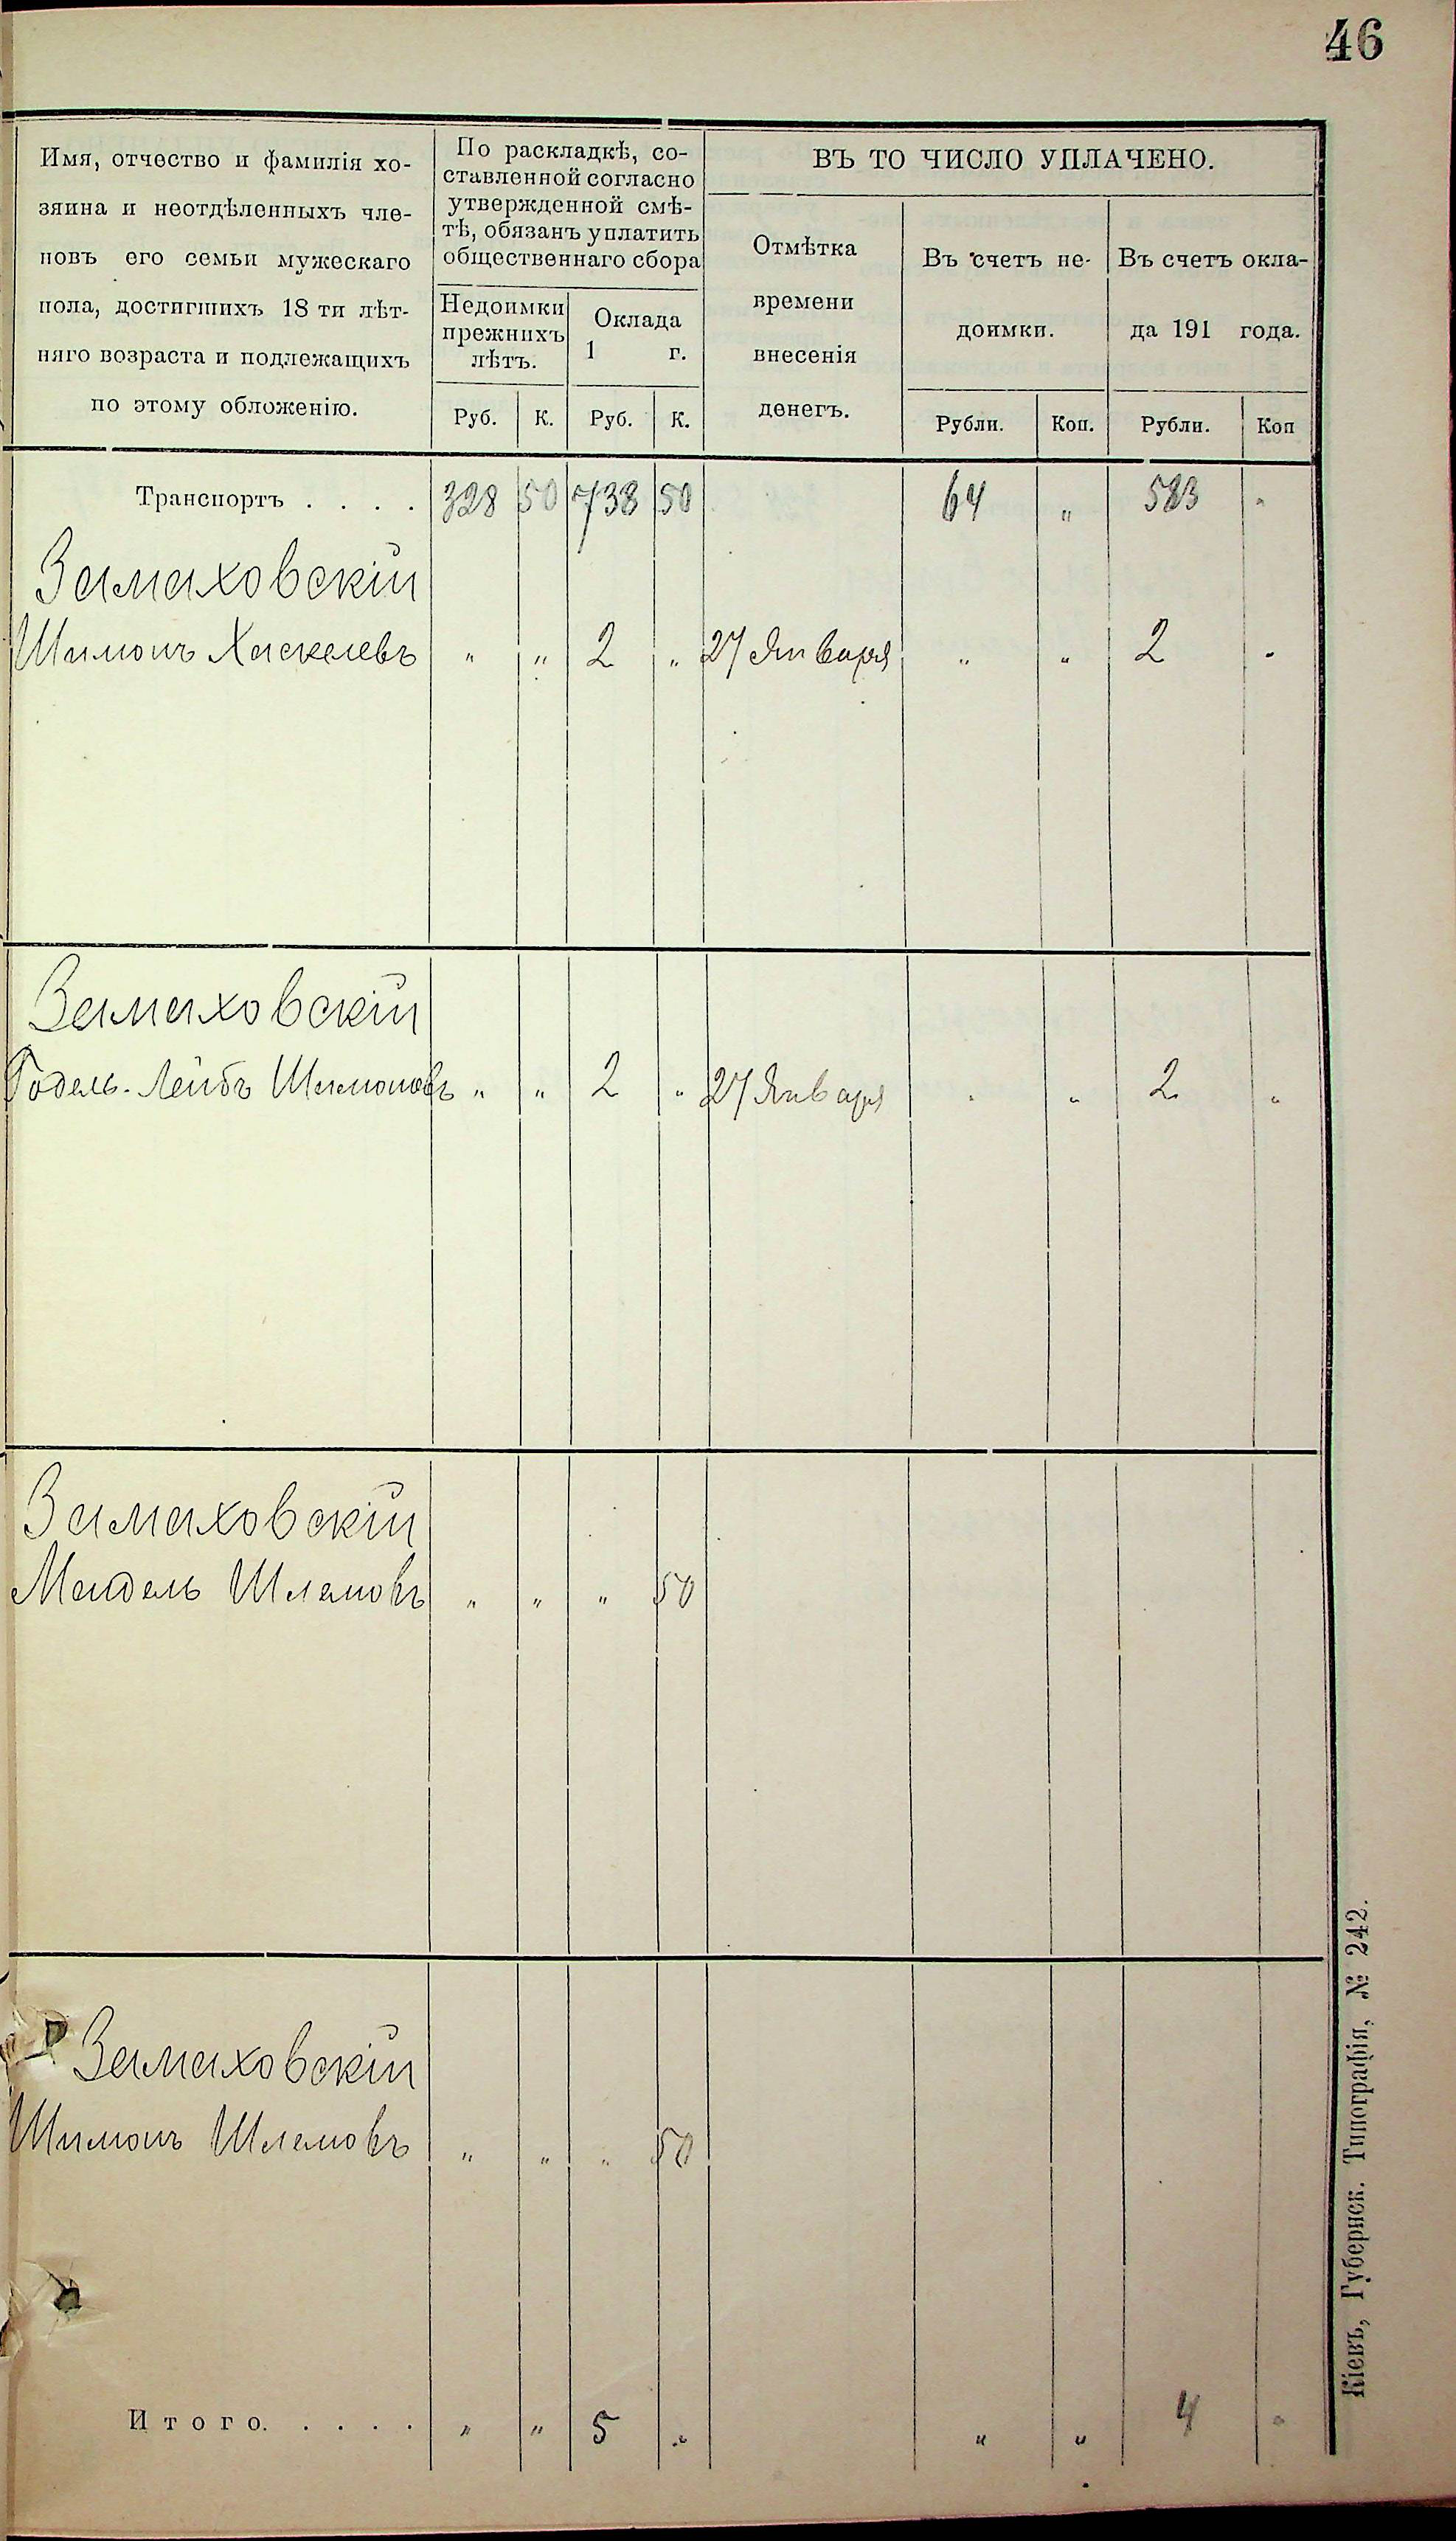 46
Имя, отчество и фамилія хо-
зяина и неотдѣленныхъ чле-
новъ его семьи мужескаго
пола, достигшихъ 18 ти лѣт-
няго возраста и подлежащихъ
по этому обложенію.
По раскладкѣ, со-
ставленной согласно
утвержденной смѣ-
тѣ, обязанъ уплатить
общественнаго сбора
Недоимки
прежнихъ
лѣтъ.
Оклада
1 г.
Руб. К. Руб. К.
ВЪ ТО ЧИСЛО УПЛАЧЕНО.
Отмѣтка
времени
внесенія
денегъ.
Въ счетъ не-
доимки.
Рубли. Коп.
Въ счетъ окла-
да 191 года.
Рубли. Коп
Транспортъ . . . . 328 50 738 50 64 „ 583 „
Замаховскій
Шимонъ Хаскелевъ „ „ 2 „ 27 Января „ „ 2 „
Замаховскій
Годель-Лейбъ Шимоновъ „ „ 2 „ 27 Января „ „ 2 „
Замаховскій
Мендель Шлемовъ „ „ „ 50
Замаховскій
Шимонъ Шлемовъ „ „ „ 50
Итого. . . . . „ „ 5 „ „ „ 4 „
Кіевъ, Губернск. Типографія, № 242.